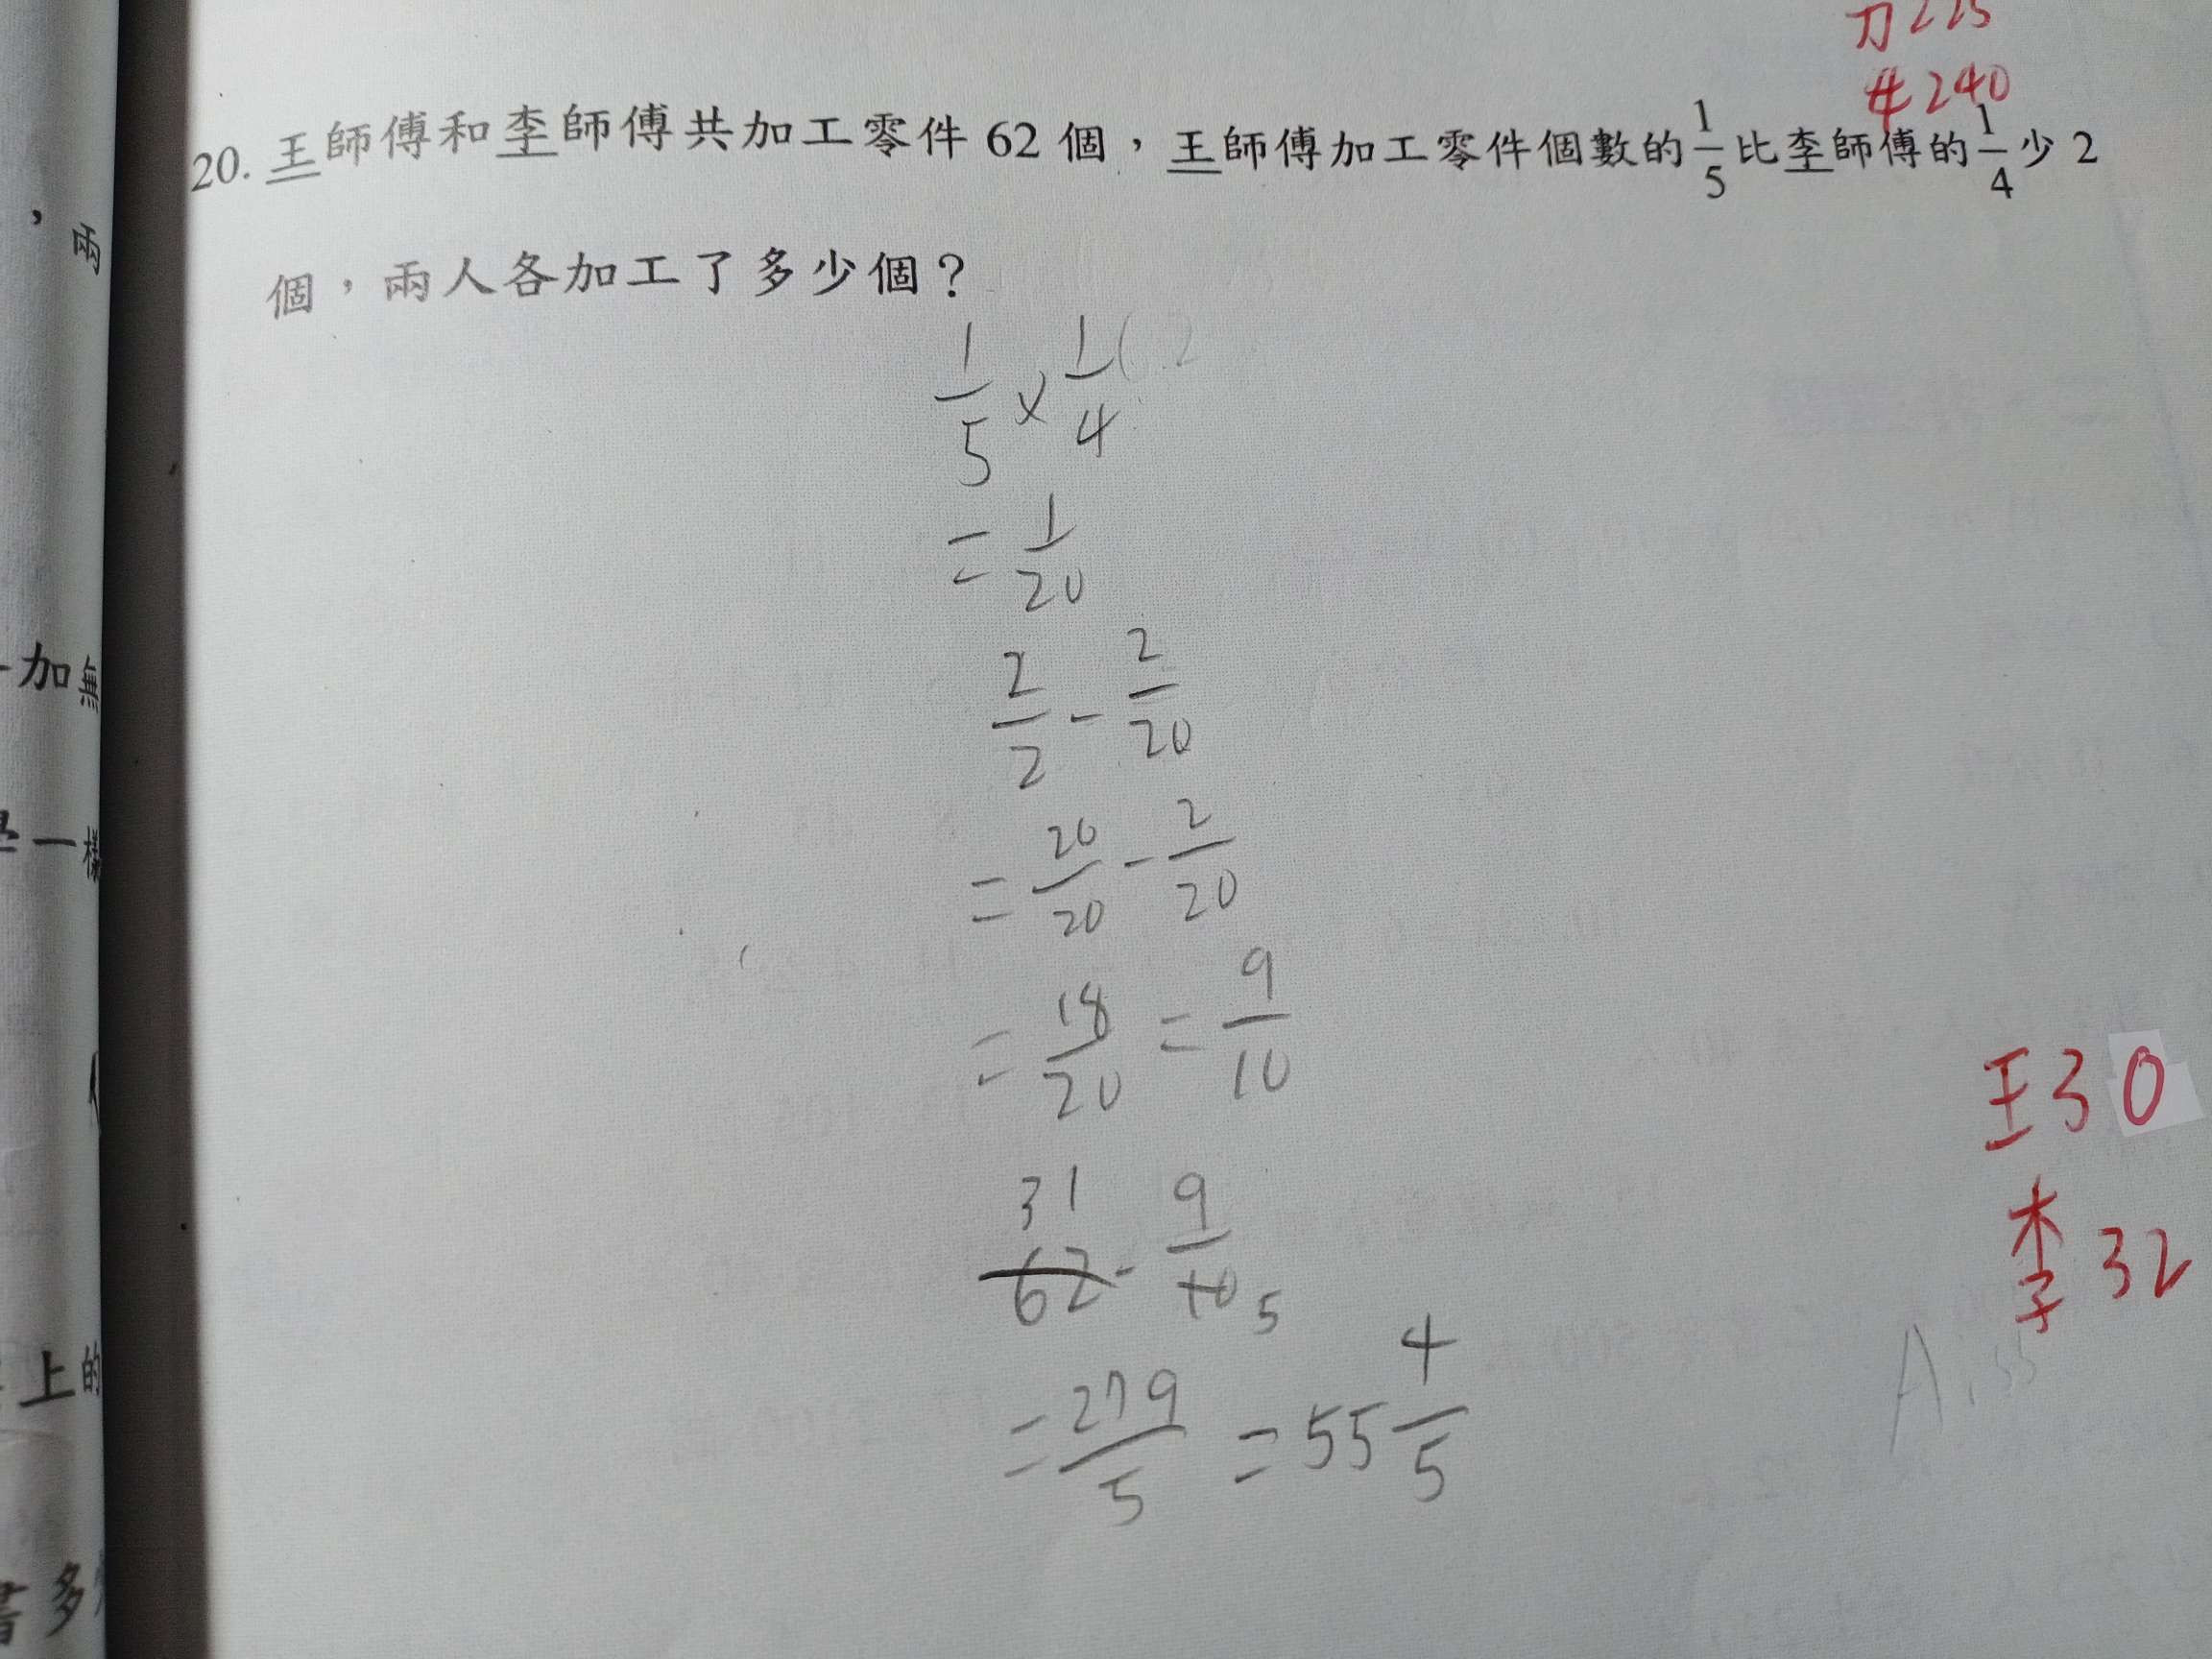 力225
牛240
20. 王師傅和李師傅共加工零件 62 個，王師傅加工零件個數的 1/5 比李師傅的 1/4 少 2
個，兩人各加工了多少個？
1/5 × 1/4
= 1/20
2/2 - 2/20
= 20/20 - 2/20
= 18/20 = 9/10
31
62 - 9/10 5
= 279/5 = 55 4/5
王30
李32
A. 55
，兩
加無
一樣
上的
書多